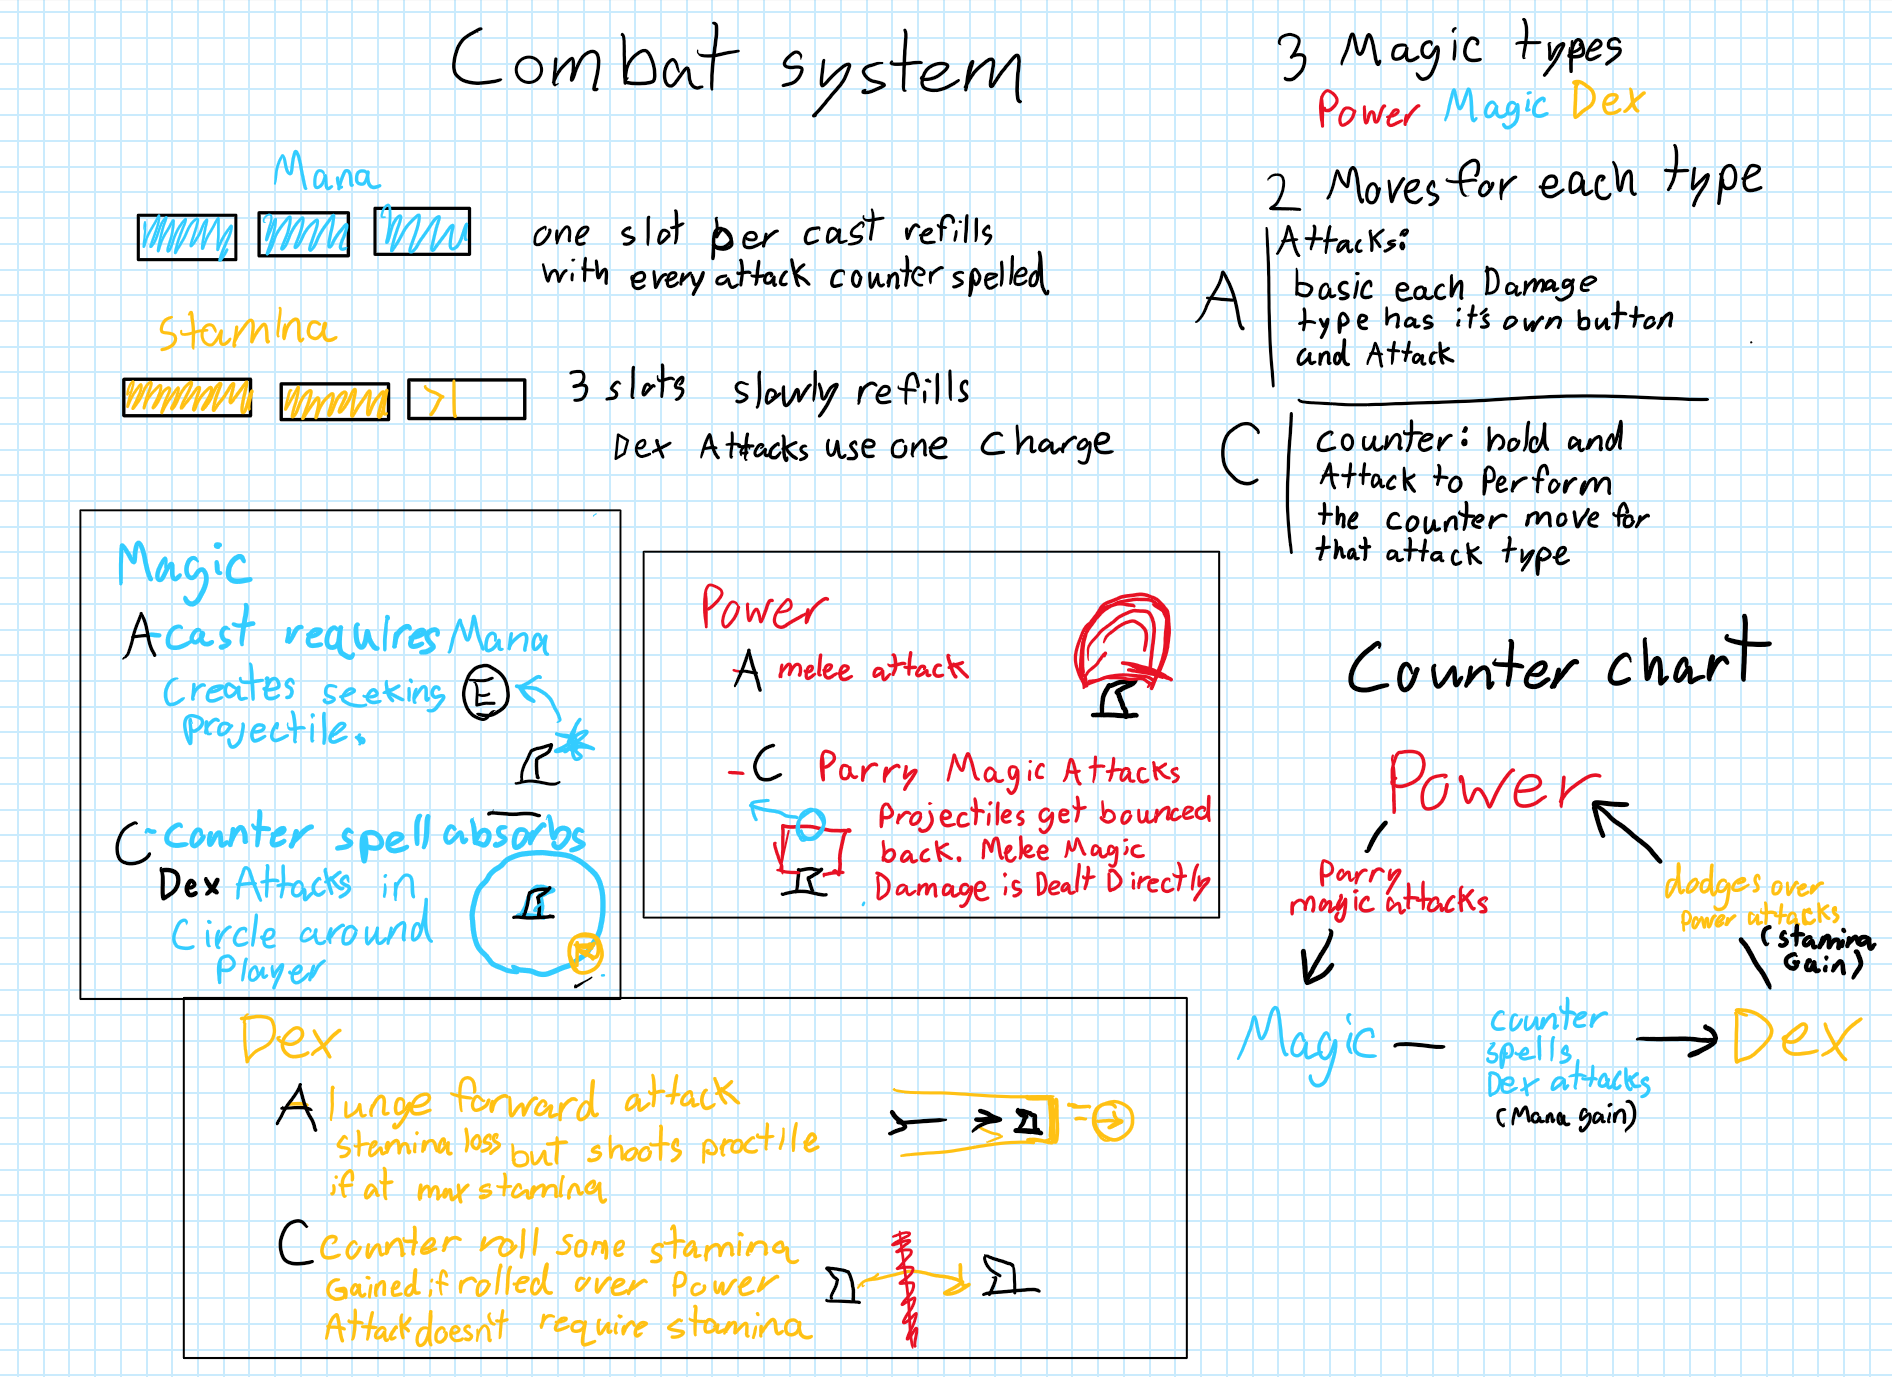 Combat system
Mana
one slot per cast refills
with every attack counter spelled
Stamina
3 slots slowly refills
Dex Attacks use one Charge
3 Magic types
Power Magic Dex
2 Moves for each type
A
Attacks:
basic each Damage
type has it's own button
and Attack
C
counter: hold and
Attack to Perform
the counter move for
that attack type
Magic
A-cast requires Mana
Creates seeking
Projectile.
E
C-Counter spell absorbs
Dex Attacks in
Circle around
Player
Power
A melee attack
-C Parry Magic Attacks
Projectiles get bounced
back. Melee Magic
Damage is Dealt Directly
Dex
A lunge forward attack
stamina loss but shoots proctile
if at max stamina
C Counter roll some stamina
Gained if rolled over Power
Attack doesn't require stamina
Counter chart
Power
Parry
magic attacks
dodges over
Power attacks
(stamina
Gain)
Magic
counter
spells
Dex attacks
(Mana gain)
Dex